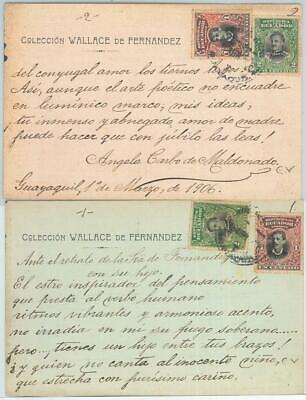 -2-
2
COLECCIÓN WALLACE DE FERNANDEZ
del conyugal amor los tiernos
Así, aunque el arte poético no encuadre
en lumínico marco, mis ideas,
tu inmenso y abnegado amor de madre
puede hacer que con júbilo las leas!
Angela Carbo de Maldonado.
Guayaquil, 1º de Marzo, de 1906.
-1-
1
COLECCIÓN WALLACE DE FERNANDEZ
ECUADOR
Ante el retrato de la Sra de Fernandez
con su hijo.
El estro inspirador del pensamiento
que presta al verbo humano
ritmos vibrantes y armonioso acento,
no irradia en mi su fuego soberano....
pero... tienes un hijo entre tus brazos!
y quien no canta al inocente niño,
que estrecha con purísimo cariño.